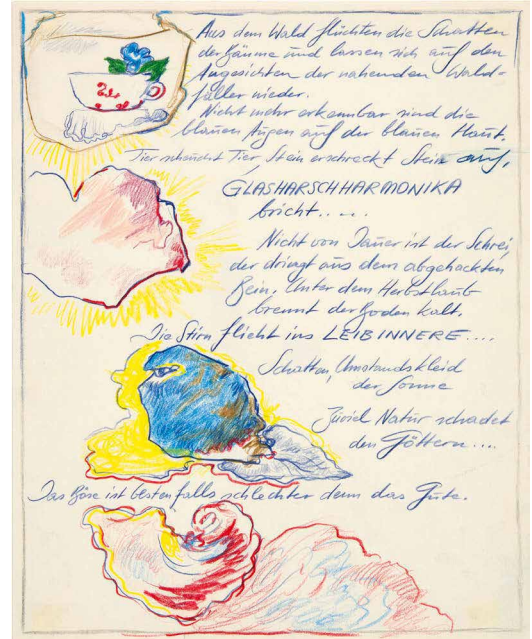 Aus dem Wald flüchten die Schatten
der Bäume und lassen sich auf den
Angesichten der nahenden Wald-
fäller nieder.
Nicht mehr erkennbar sind die
blauen Augen auf der blauen Haut.
Tier scheucht Tier, Stein erschreckt Stein auf,
GLASHARSCHHARMONIKA
bricht....
Nicht von Dauer ist der Schrei,
der dringt aus dem abgehackten
Bein. Unter dem Herbstlaub
brennt der Boden kalt.
Die Stirn flieht ins LEIBINNERE....
Schatten, Umstandskleid
der Sonne
Zuviel Natur schadet
den Göttern....
Das Böse ist bestenfalls schlechter denn das Gute.